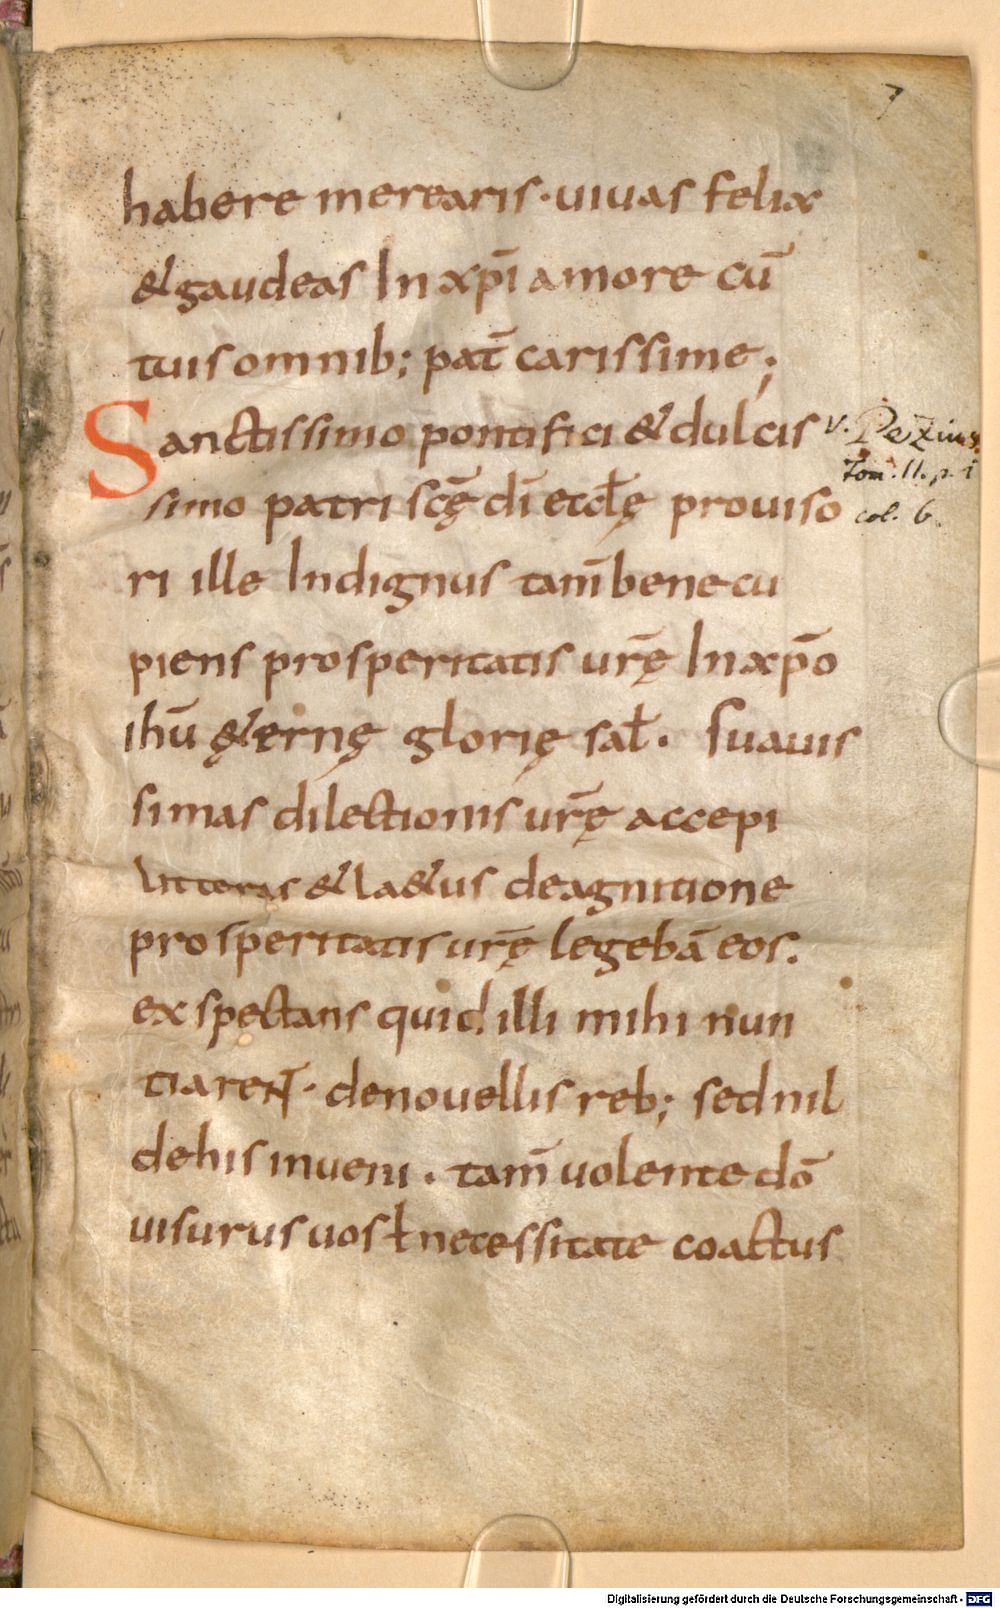 7
habere merearis · uiuas felix
& gaudeas In xp̄i amore cū
tuis omnib; pat̄ carissime;
Sanctissimo pontifici & dulcis
simo patri sc̄ę dī eccl̄ę prouiso
ri ille Indignus tam̄ bene cu
piens prosperitatis ur̄ę In xp̄o
ihū ę&ernę glorię sal̄. Suauis
simas dilectionis ur̄ę accepi
litteras & la&us de agnitione
prosperitatis ur̄ę legebā eos.
exspectans quid illi mihi nun
tiarent · de nouellis reb; sed nil
de his inueni . tam̄ uolente dō
uisurus uos ł necessitate coactus
v. Pezius
Tom. II. p. 1
col. 6.
Digitalisierung gefördert durch die Deutsche Forschungsgemeinschaft - DFG